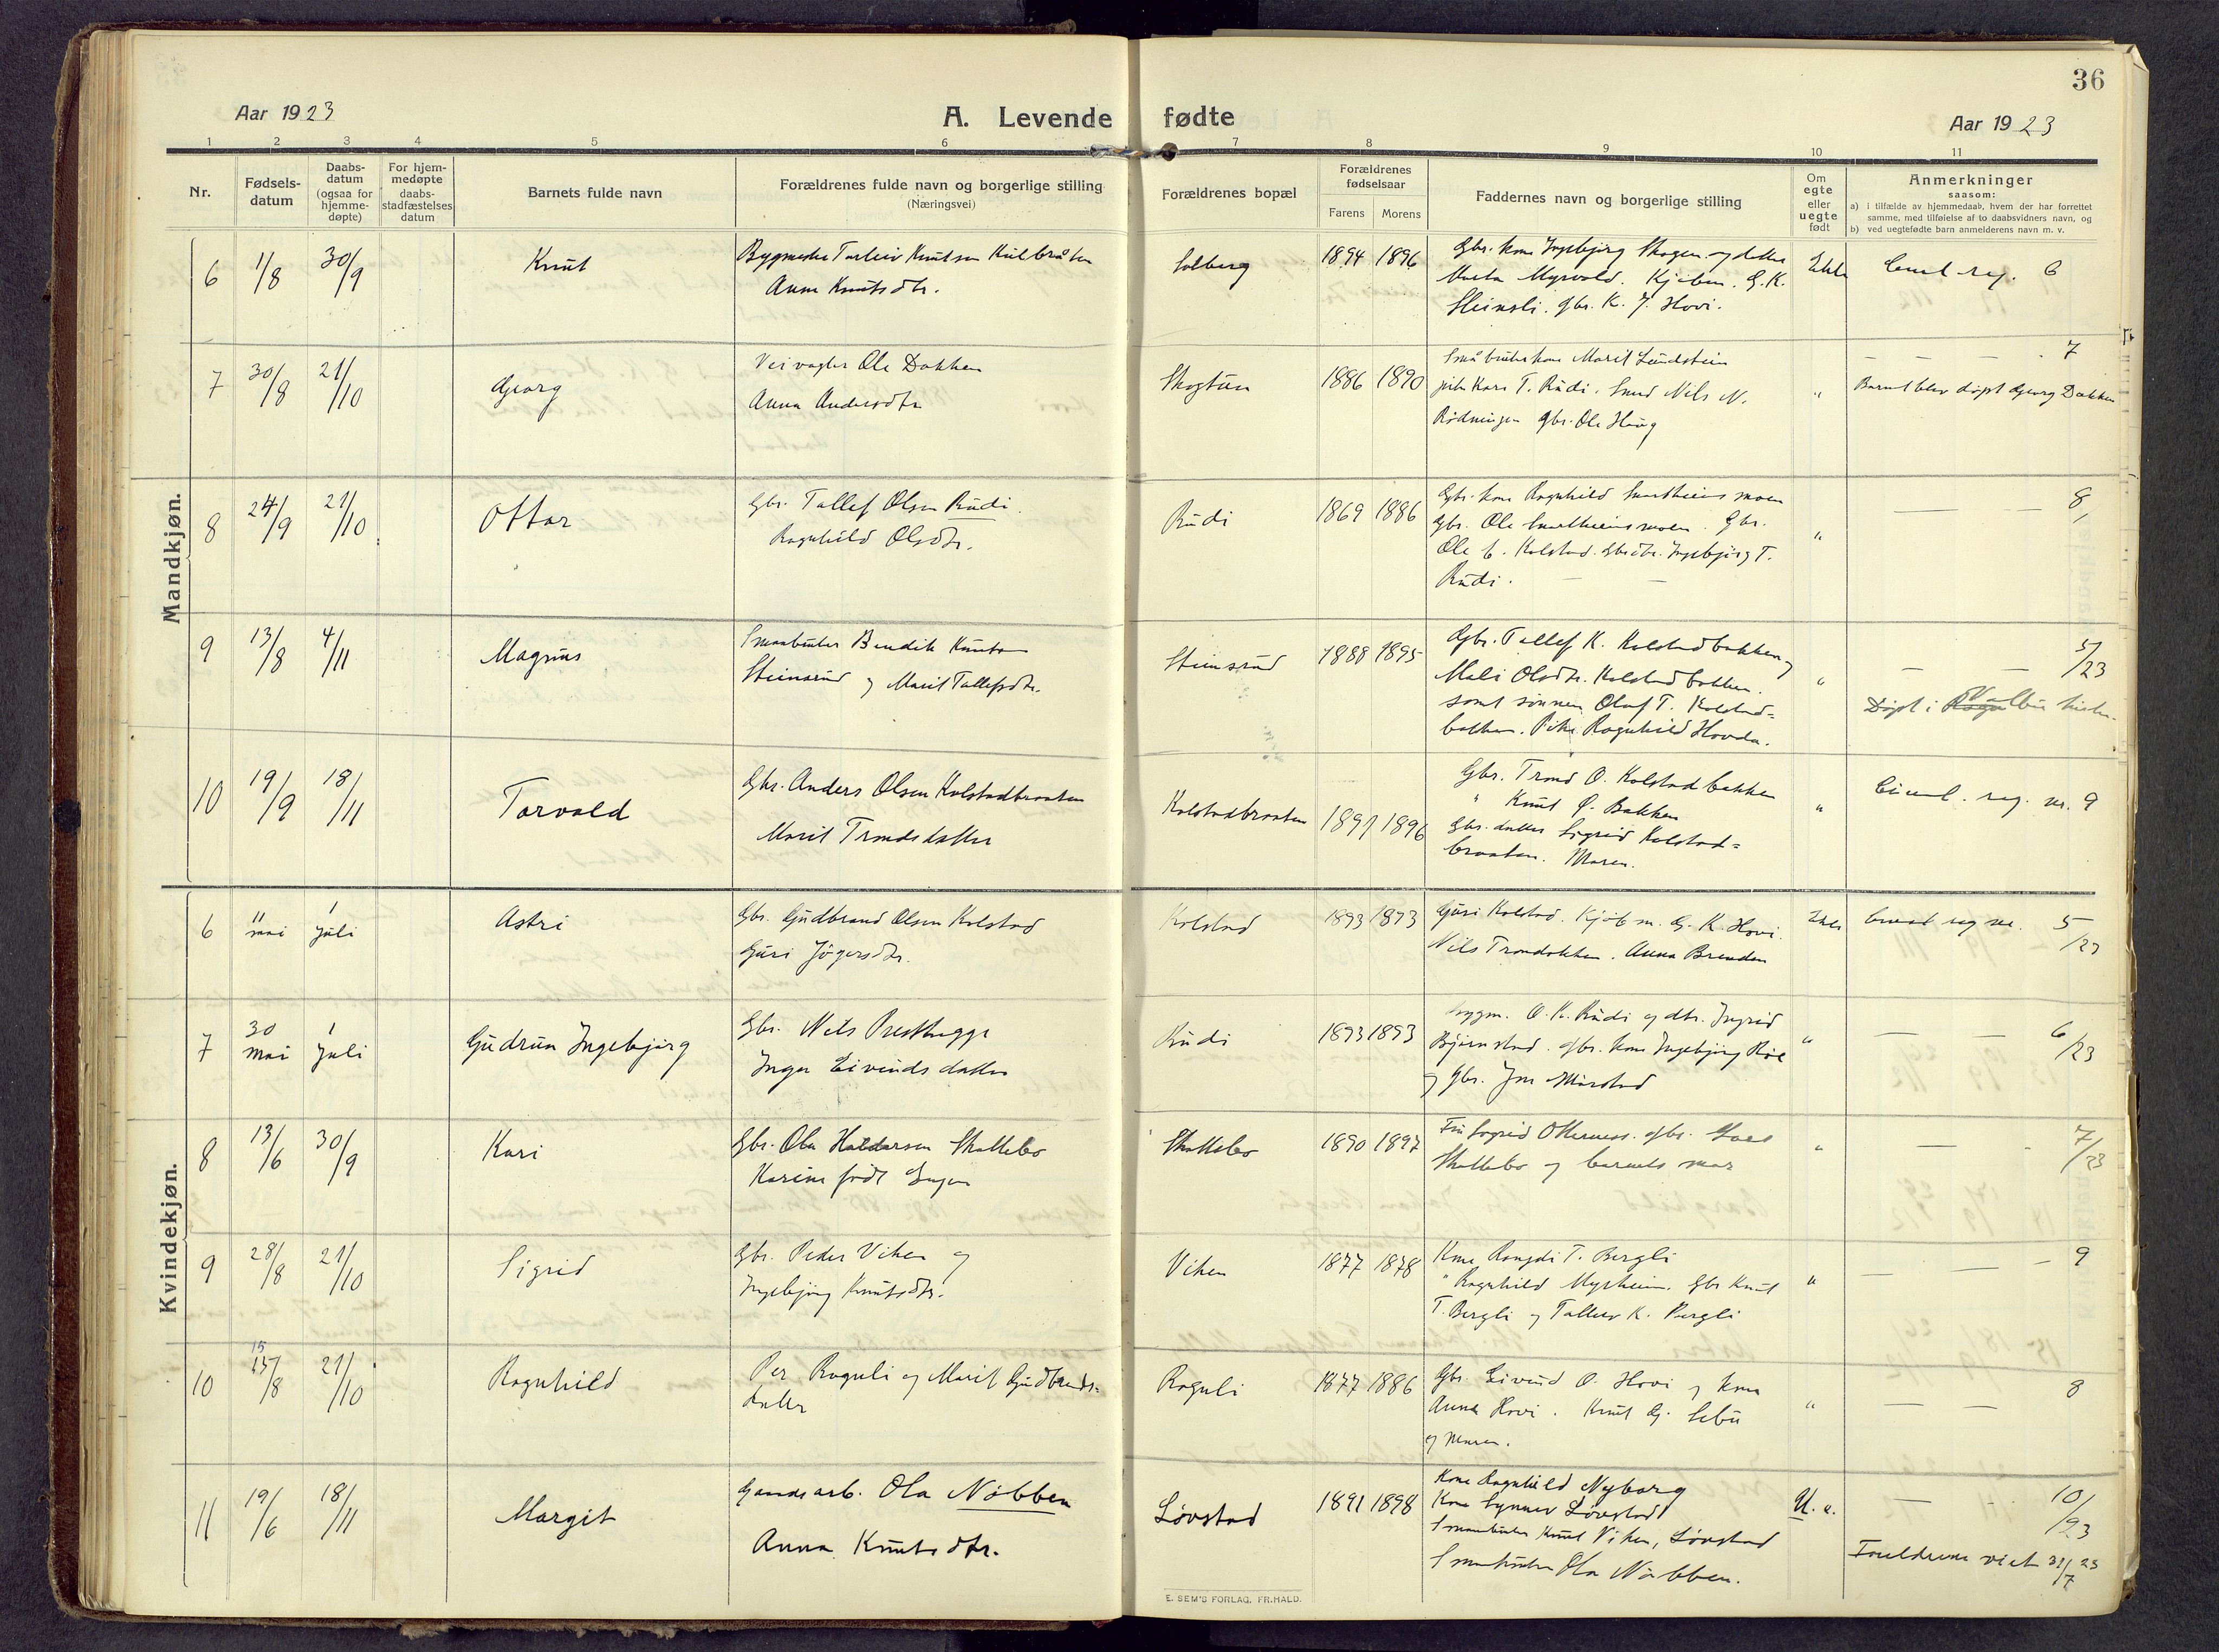 36
Aar 1923
A. Levende fødte
Aar 1923
1 2 3 4 5 6 7 8 9 10 11
Nr.
Fødsels-
datum
Daabs-
datum
(ogsaa for
hjemme-
døpte)
For hjem-
medøpte
daabs-
stadfæstelses
datum
Barnets fulde navn
Forældrenes fulde navn og borgerlige stilling
(Næringsvei)
Forældrenes bopæl
Forældrenes
fødselsaar
Farens Morens
Faddernes navn og borgerlige stilling
Om
egte
eller
uegte
født
Anmerkninger
saasom:
a) i tilfælde av hjemmedaab, hvem der har forrettet
samme, med tilføielse af to daabsvidners navn, og
b) ved uegtefødte barn anmelderens navn m. v.
Mandkjøn.
6 1/8 30/9 Knut
Torleiv Knutsen
Anne Knutsdtr.
Solberg 1894 1896
Gbr. kone Ingebjørg
Myrvold. Kjøbm. G. K.
gbr. K. J. Hovi.
Ekte
reg. 6
7 30/8 21/10 Georg
Veivogter Ole Dokken
Anna Andersdtr
Skogtun 1886 1890
Marit Lundstein
pike Kari T. Rudi. Smed Nils N.
Rødningen gbr. Ole Haug
"
7
Barnet blev døpt Georg Dokken
8 24/9 21/10 Ottar
Gbr. Tollef Olsen Rudi.
Ragnhild Olsdtr.
Rudi 1869 1886
Gbr. kone Ragnhild
Gbr. Ole Gbr.
Ole Kolstad. Ingebjørg T.
Rudi.
"
8
9 13/8 4/11 Magnus
Smaabruker Bendik Knutsen
Steinsrud og Marit Tollefsdtr.
Steinsrud 1888 1895
Gbr. Tollef K. Kolstadbakken og
Mali Olsdtr. Kolstadbakken.
samt sønnen Olaf T. Kolstad=
bakken. Pike Ragnhild Hovda.
"
5/23
Døpt i
10 19/9 18/11 Torvald
Gbr. Anders Olsen Kolstadbraaten
Marit Trondsdatter
Kolstadbraaten 1891 1896
Gbr. Trond O. Kolstadbakken
" Knut O. Bakken
Gbr. datter Sigrid Kolstad=
braaten. Moren.
"
reg. nr. 9
Kvindekjøn.
6 11 mai 1 juli Astri
Gbr. Gudbrand Olsen Kolstad
Guri
Kolstad 1893 1893
Guri Kolstad. Kjøbm. G. K. Hovi.
Nils Trondokken. Anna Brenden
Ekte
reg nr. 5/23
7 30 mai 1 juli Gudrun Ingebjørg
Gbr. Nils Presthegge
Inga Eivindsdatter
Rudi 1893 1893
Bygm. O. K. Rudi og dtr. Ingrid
Bjørnstad. gbr. kone Ingebjørg
og gbr.
"
6/23
8 13/6 30/9 Kari
Gbr. Ola Haldorsen Skattebo
Karine født
Skattebo 1890 1897
Fru Sigrid gbr.
Skattebo og barnets mor
"
7/23
9 28/8 21/10 Sigrid
Gbr. Peder Viken og
Ingebjørg Knutsdtr.
Viken 1877 1878
Kone Rangdi T. Bergli
" Ragnhild Myrheim. Gbr Knut
T. Bergli og Tollev K. Bergli
"
9
10 15/8 21/10 Ragnhild
Per Roguli og Marit Gudbrands=
datter
Roguli 1877 1886
Gbr. Eivind O. Hovi og kone
Anna Hovi. Knut G.
og Moren.
"
8
11 19/6 18/11 Margit
Gaardsarb. Ola Nøbben
Anna Knutsdtr.
Løvstad 1891 1898
Kone Ragnhild Nyborg
Kone Synnev Løvstad
Smaabruker Knut Viken, Løvstad
Smaabruker Ola Nøbben.
U.
10/23
Foreldrene viet 31/7 23
E. SEM'S FORLAG, FR.HALD.